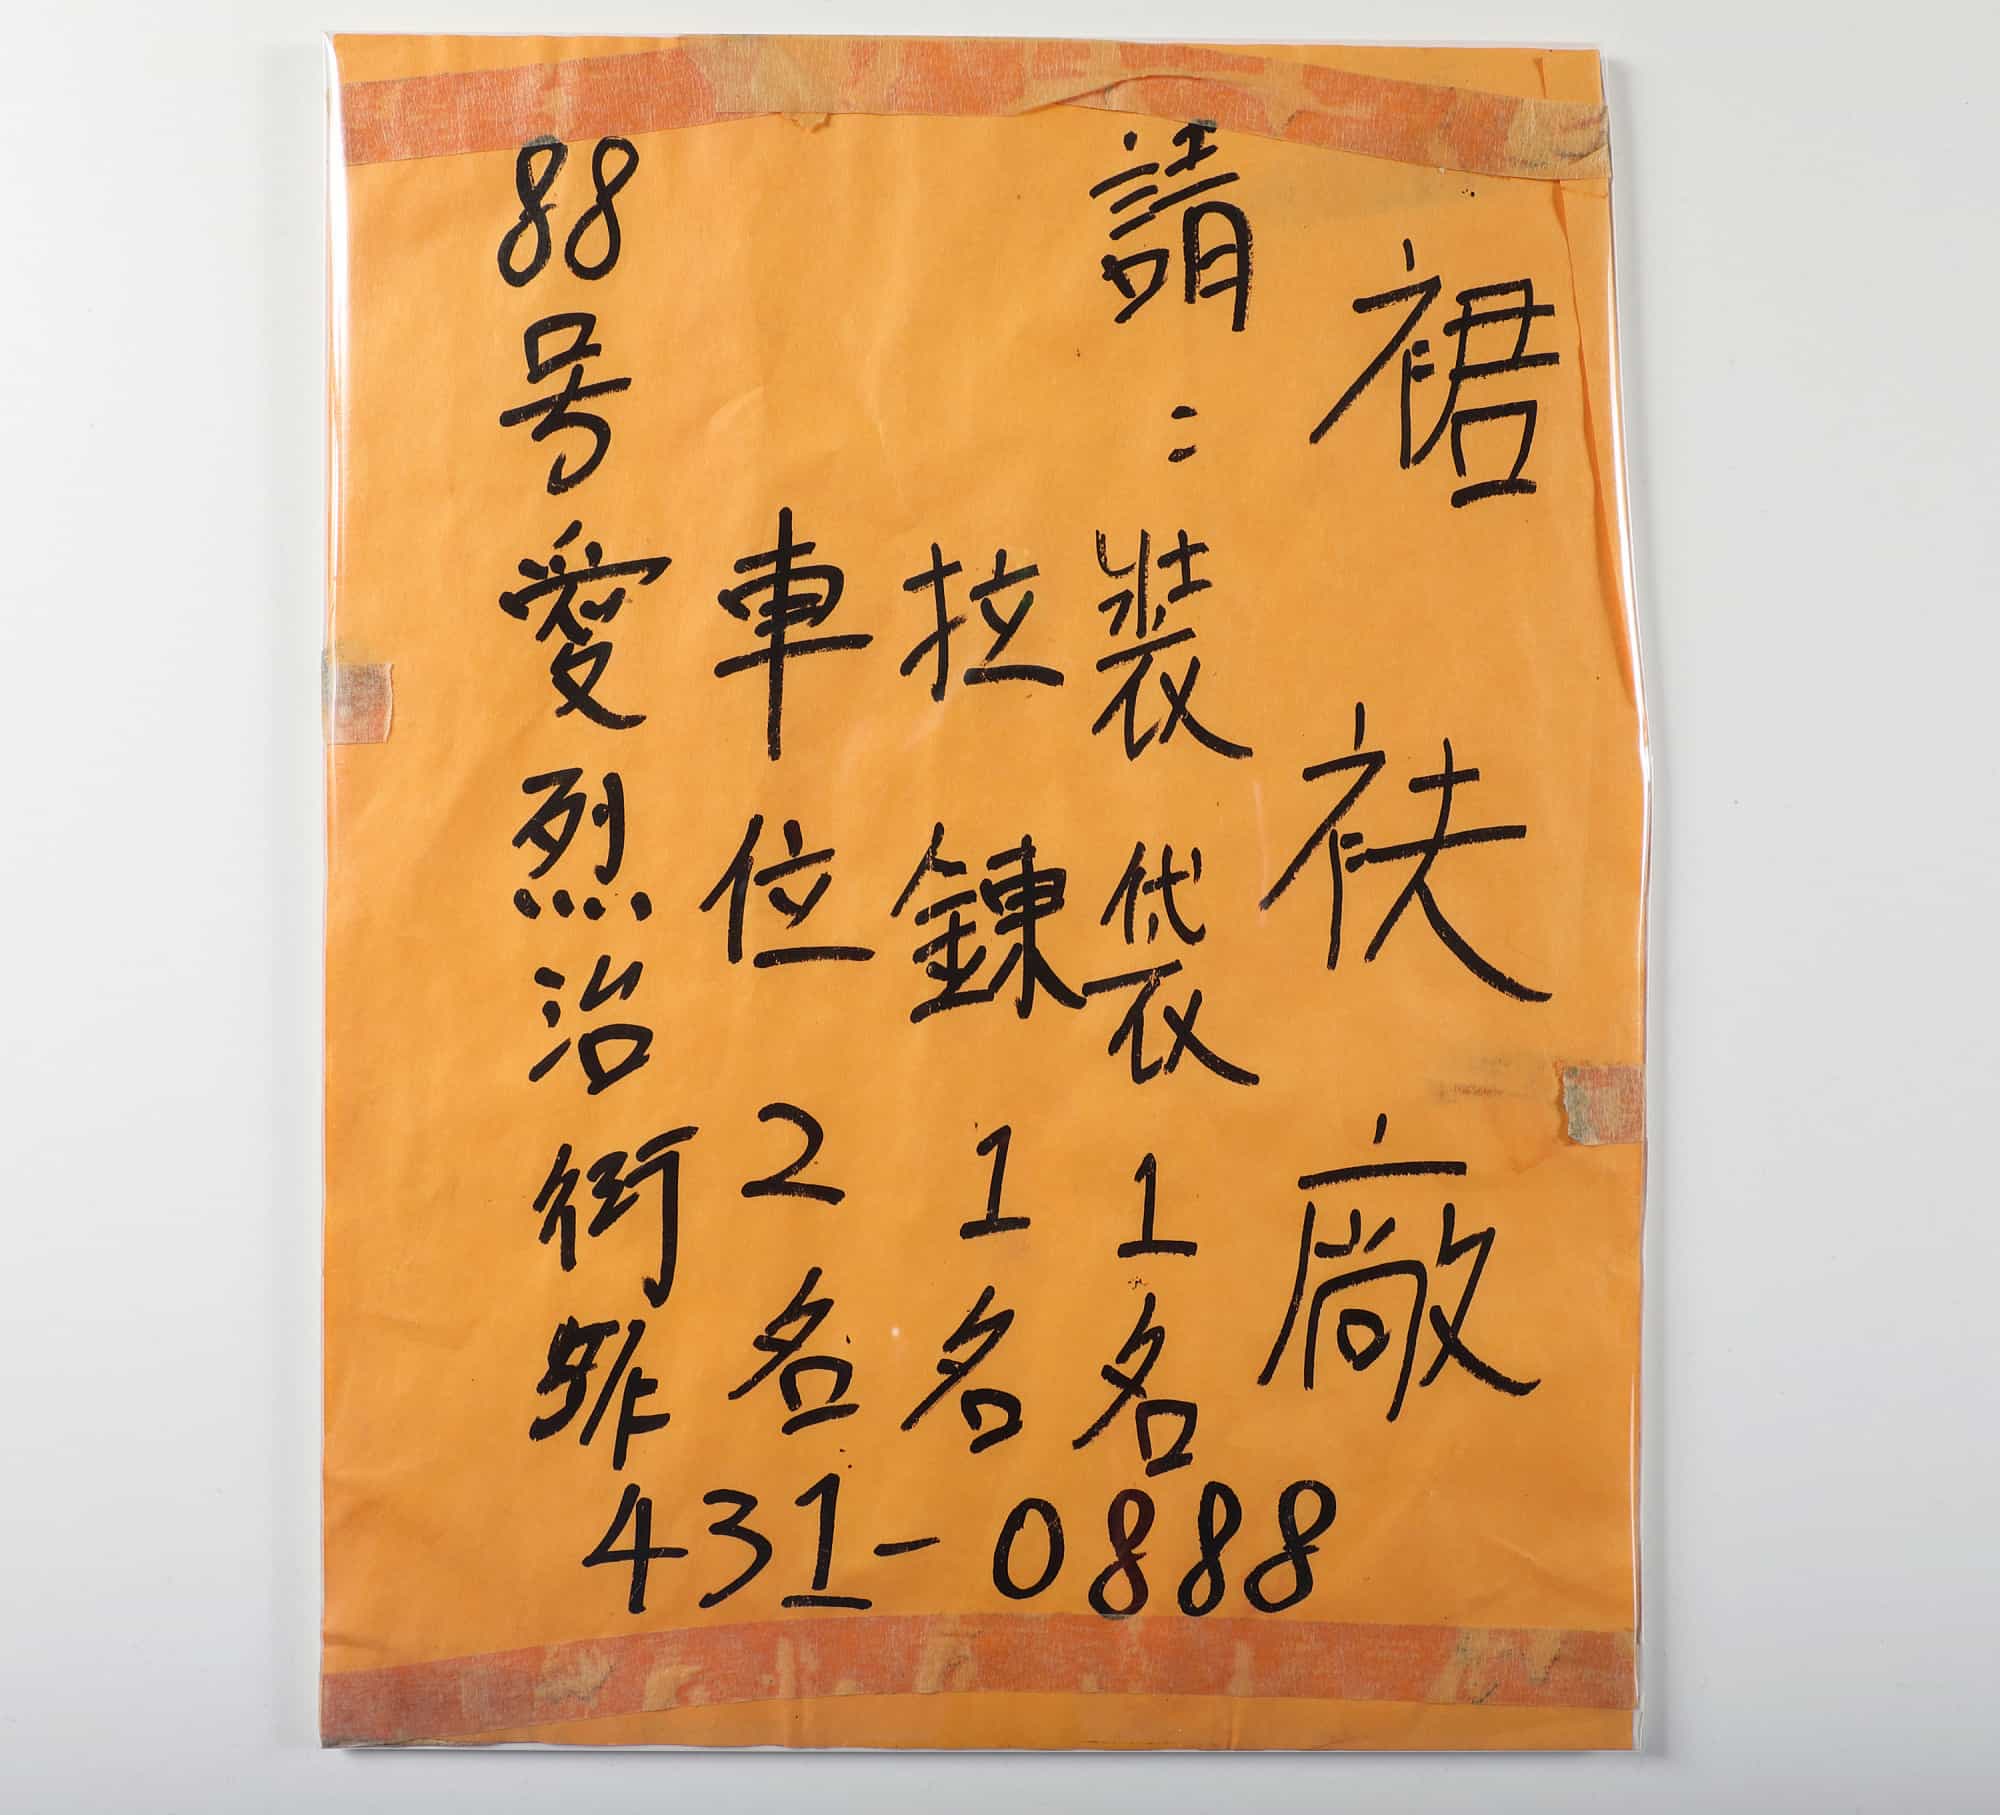 裙衭廠
請：裝袋1名
拉鍊1名
車位2名
88号愛烈治街
431-0888